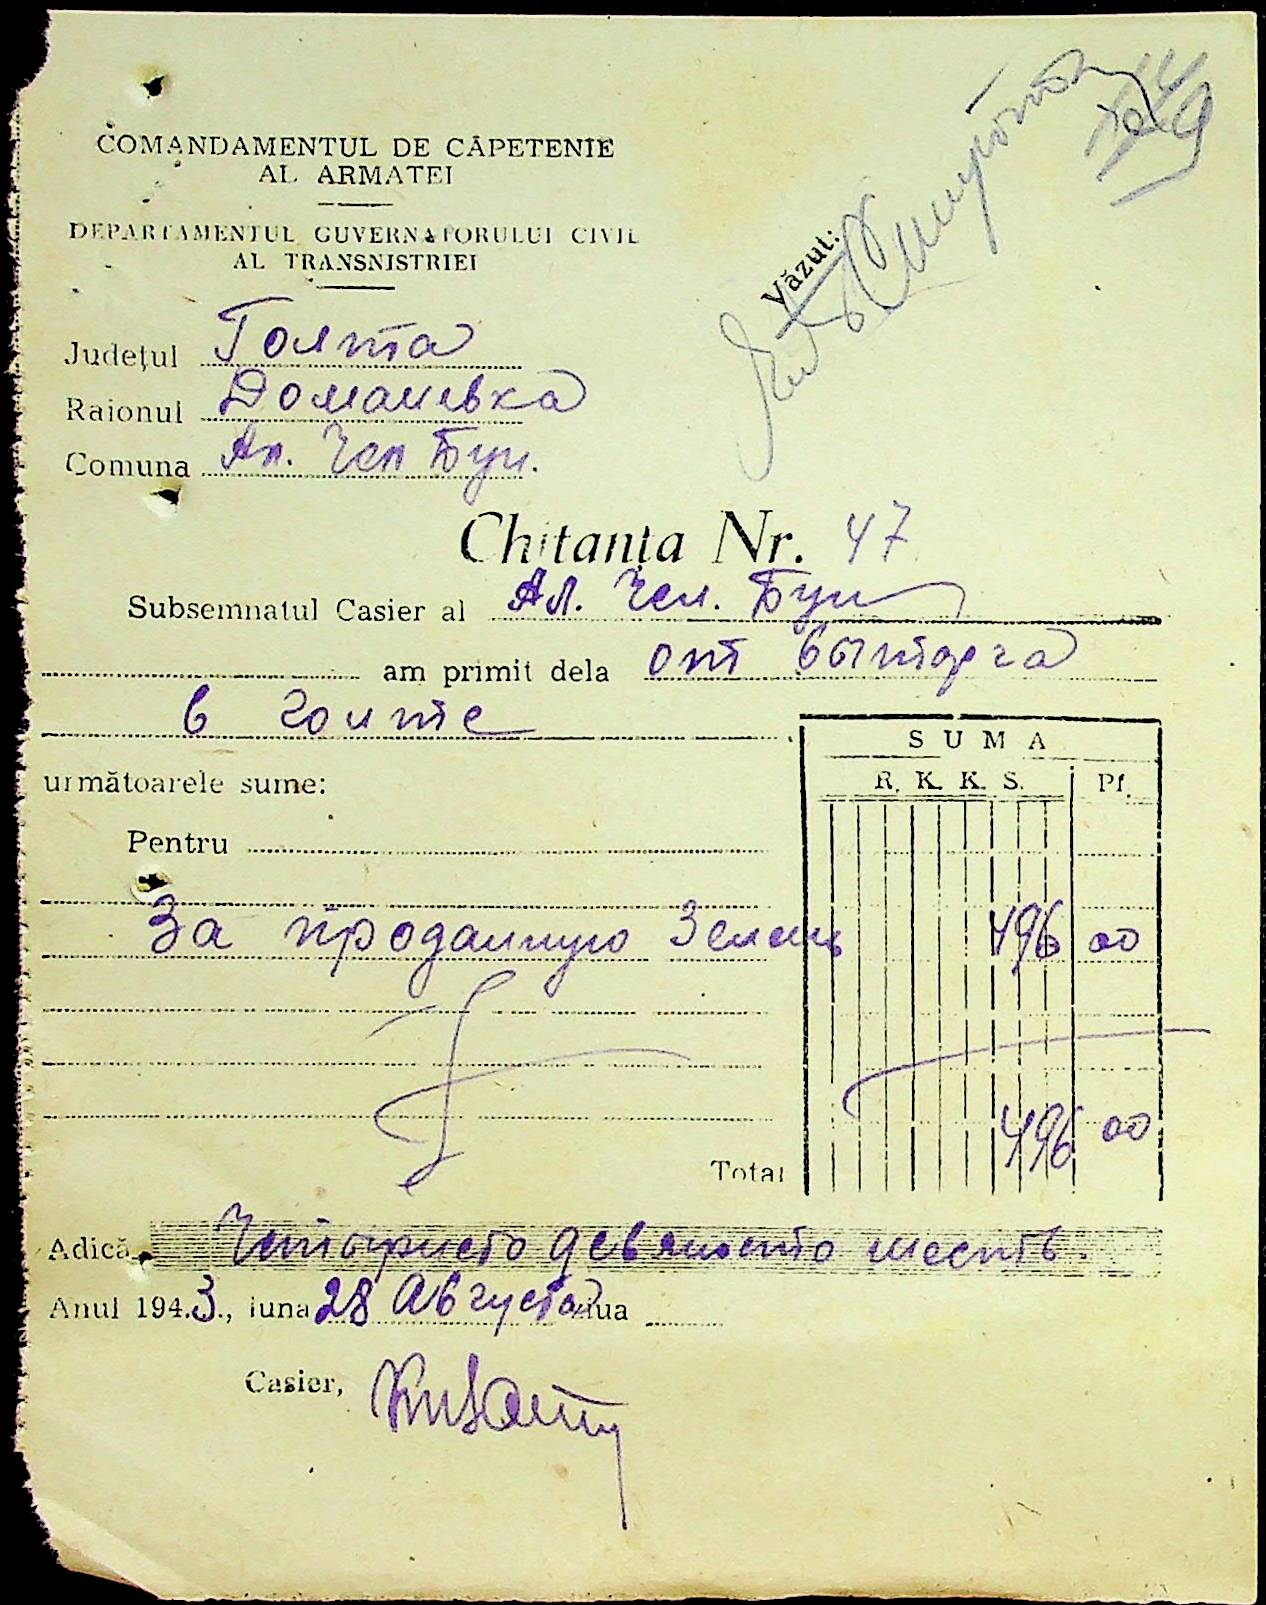 COMANDAMENTUL DE CĂPETENIE
AL ARMATEI
DEPARTAMENTUL GUVERNATORULUI CIVIL
AL TRANSNISTRIEI
Văzut:
Județul Голта
Raionul Доманевка
Comuna Ал. Чел Бун.
Chitanța Nr. 47
Subsemnatul Casier al Ал. Чел. Бун
am primit dela от выторга
в голте
SUMA
R. K. K. S. Pf.
următoarele sume:
Pentru
За проданную зелень 496 00
Total 496 00
Adică Четыриста девяносто шесть.
Anul 194.3., luna 28 Августа ziua
Casier,